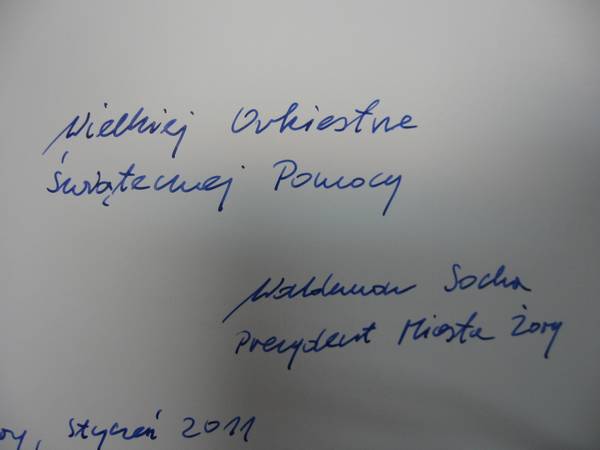 Wielkiej Orkiestrze
Świątecznej Pomocy
Waldemar Socha
Prezydent Miasta Żory
ory, styczeń 2011